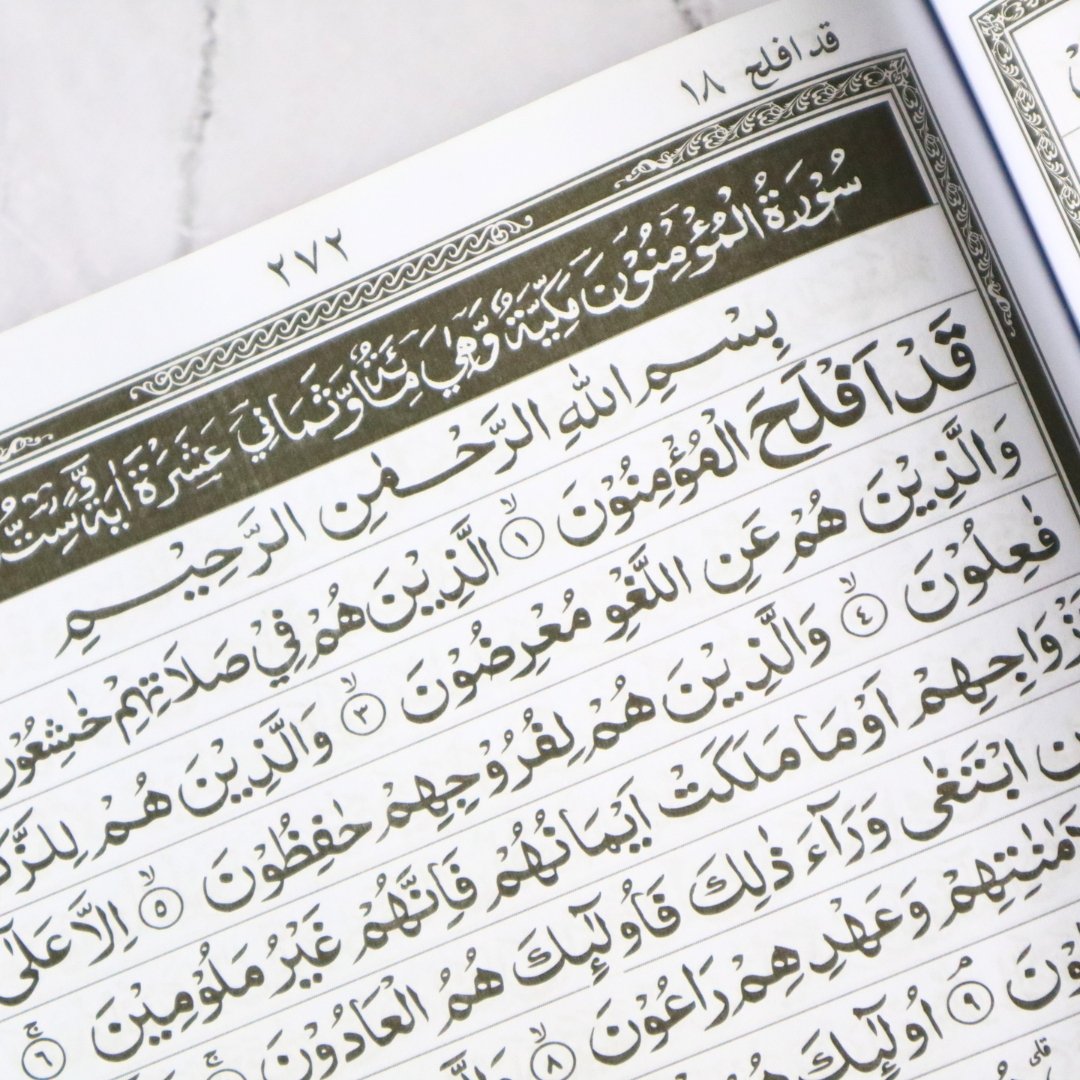 قد افلح ١٨
٢٧٢
سُوْرَةُ الْمُؤْمِنُوْنَ مَكِّيَّةٌ وَّهِيَ مِائَةٌ وَّثَمَانِيَ عَشَرَةَ اٰيَةً وَّسِتُّ
بِسْمِ اللهِ الرَّحْمٰنِ الرَّحِيْمِ
قَدْ اَفْلَحَ الْمُؤْمِنُوْنَ ١ الَّذِيْنَ هُمْ فِيْ صَلَاتِهِمْ خٰشِعُوْنَ
وَالَّذِيْنَ هُمْ عَنِ اللَّغْوِ مُعْرِضُوْنَ ٣ وَالَّذِيْنَ هُمْ لِلزَّكٰ
فٰعِلُوْنَ ٤ وَالَّذِيْنَ هُمْ لِفُرُوْجِهِمْ حٰفِظُوْنَ ٥ اِلَّا عَلٰٓى
زْوَاجِهِمْ اَوْ مَا مَلَكَتْ اَيْمَانُهُمْ فَاِنَّهُمْ غَيْرُ مَلُوْمِيْنَ ٦
نِ ابْتَغٰى وَرَآءَ ذٰلِكَ فَاُولٰٓئِكَ هُمُ الْعَادُوْنَ
مٰنٰتِهِمْ وَعَهْدِهِمْ رَاعُوْنَ ٨
وْنَ ٩ اُولٰٓئِكَ